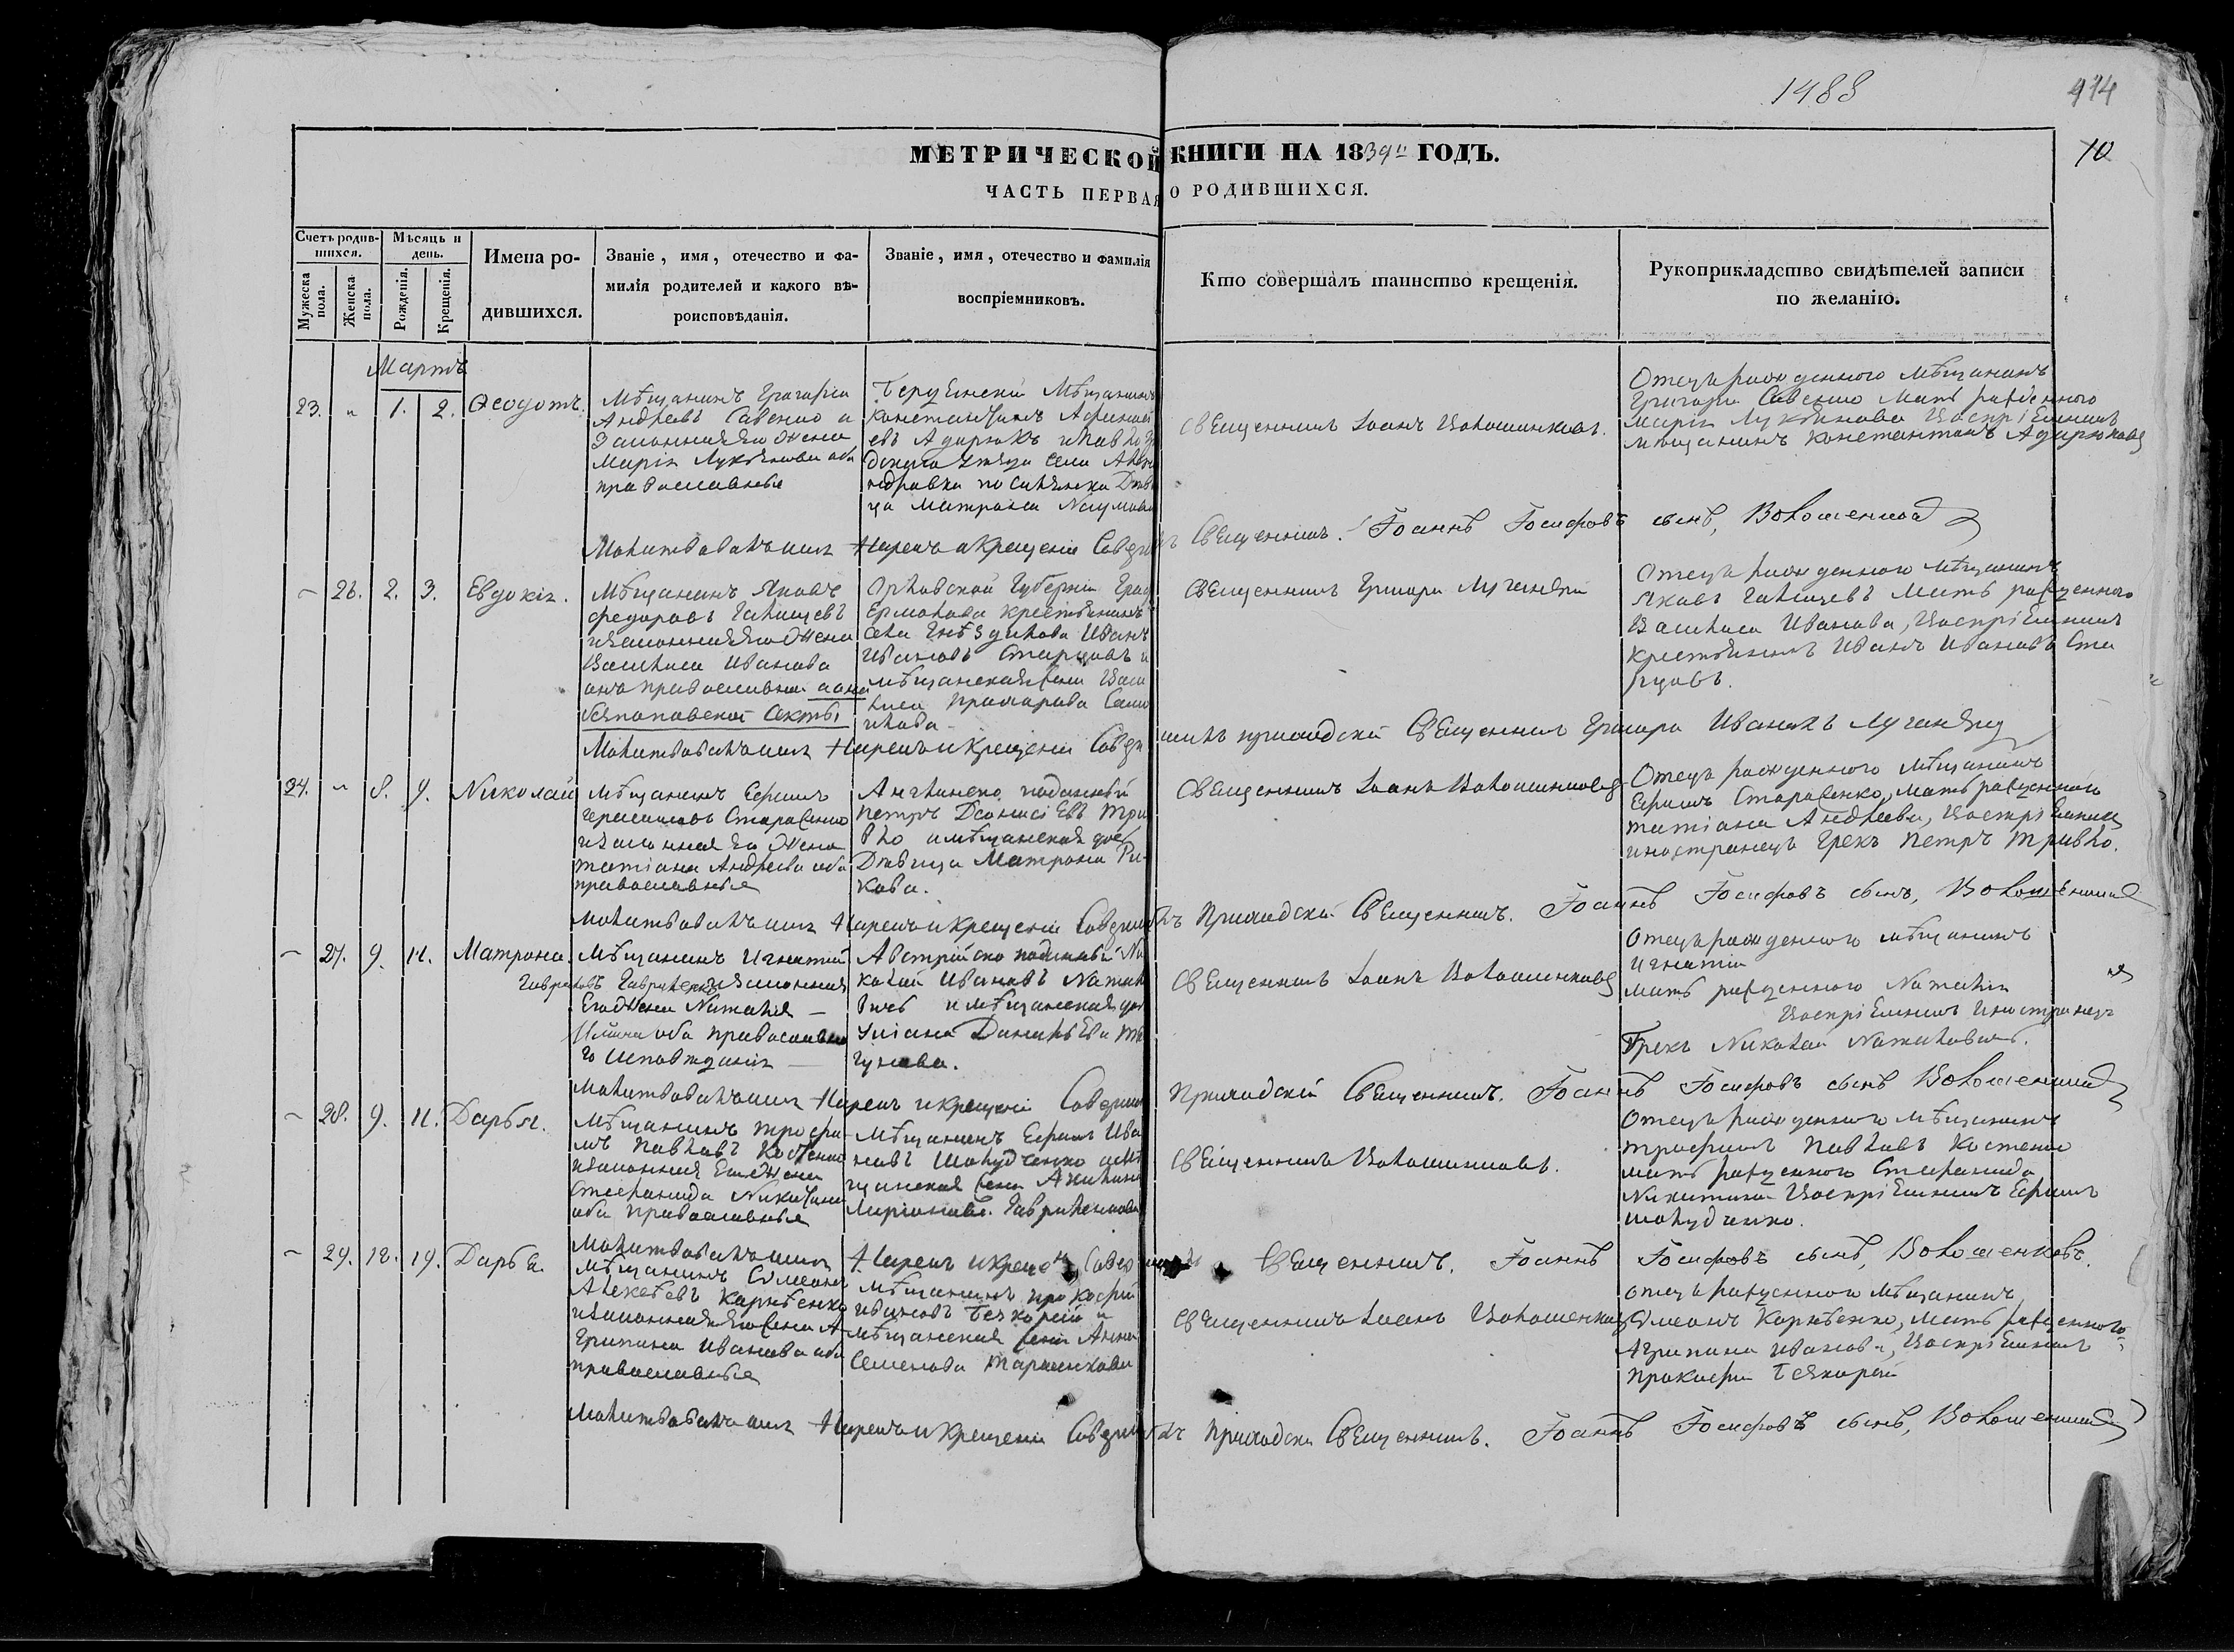 1488
914
10
МЕТРИЧЕСКОЙ КНИГИ НА 1839й ГОДЪ.
ЧАСТЬ ПЕРВАЯ О РОДИВШИХСЯ.
Счетъ родив-
шихся.
Мужеска
пола.
Женска
пола.
Мѣсяцъ и
день.
Рожденія.
Крещенія.
Имена ро-
дившихся.
Званіе, имя, отечество и фа-
милія родителей и какого вѣ-
роисповѣданія.
Званіе, имя, отечество и фамилія
воспріемниковъ.
Кто совершалъ таинство крещенія.
Рукоприкладство свидѣтелей записи
по желанію.
Мартъ
23. 1. 2. Ѳеодотъ.
Мѣщанинъ Григорій
Андреевъ Савенко и
Законная его Жена
Марія Лукьянова оба
православные
Мѣщанинъ
Константинъ
Матрона Наумова
Священникъ Іоанъ Волошинковъ.
Отецъ рожденного мѣщанинъ
Григорій Савенко Мать рожденного
Марія Лукьянова Воспріемникъ
мѣщанинъ Константинъ
Молитвовалъ имя Нарекъ и Крещеніе Совершилъ Священникъ. Іоаннъ Іосифовъ сынъ, Волошенков
26. 2. 3. Евдокія.
Мѣщанинъ Яковъ
Федоровъ Галищевъ
и законная его Жена
Василиса Иванова
онъ православный а она
безпоповской Секты
Орловской Губерніи
крестьянинъ
села Гнѣздилова Иванъ
Ивановъ Старцовъ и
мѣщанская жена Васи
лиса Прохорова
Священникъ Григорій
Отецъ рожденного мѣщанинъ
Яковъ Галищевъ Мать рожденного
Василиса Иванова, Воспріемникъ
Крестьянинъ Иванъ Ивановъ Ста
рцовъ.
Молитвовалъ имя Нарекъ и Крещеніе Совершилъ приходскій Священникъ Григорій Ивановъ
24. 8. 9. Николай
Мѣщанинъ Ефимъ
Герасимовъ Старосенко
и законная его Жена
Татіана Андреева оба
православные
Англинско подданный
Петръ Діонисіевъ Три
вло и мѣщанская дочь
Дѣвица Матрона Ры-
кова.
Священникъ Іоанъ Волошинковъ
Отецъ рожденного мѣщанинъ
Ефимъ Старосенко, Мать рожденного
Татіана Андреева, Воспріемникъ
иностранецъ Грекъ Петръ Тривло.
Молитвовалъ имя Нарекъ и Крещеніе Совершилъ Приходскій Священникъ. Іоаннъ Іосифовъ сынъ, Волошенков
27. 9. 11. Матрона.
Мѣщанинъ Игнатій
Гавриловъ Гавриленко и законная
Его Жена Наталія —
Ильина оба православно
го исповѣданія —
Австрійско подданный Ни
колай Ивановъ
и мѣщанская дочь
Уліана Данильева
Священникъ Іоанъ Волошенковъ
Отецъ рожденного мѣщанинъ
Игнатій
Мать рожденного Наталія
Воспріемникъ Иностранецъ
Грекъ Николай
Молитвовалъ имя Нарекъ и крещеніе Совершилъ Приходскій Священникъ. Іоаннъ Іосифовъ сынъ Волошенков
28. 9. 11. Дарья.
Мѣщанинъ Трофи
мъ Павловъ Костенко
и законная Его Жена
Стефанида Никитина
оба православные
Мѣщанинъ Ефимъ Ива
новъ Шолудченко и мѣ
щанская жена Акилина
Гавриленкова
Священникъ Волошинковъ.
Отецъ рожденного Мѣщанинъ
Трофимъ Павловъ Костенко
мать рожденного Стефанида
Никитина Воспріемникъ Ефимъ
Шолудченко.
Молитвовалъ имя Нарекъ и крещеніе Совершилъ Священникъ. Іоаннъ Іосифовъ сынъ, Волошенковъ.
29. 18. 19. Дарья.
Мѣщанинъ Симеонъ
Алексѣевъ Карнѣенко
и законная его жена А
грипина Иванова оба
православные
Мѣщанинъ Прокофій
Ивановъ и
мѣщанская жена Анна
Семенова
Священникъ Іоанъ Волошенковъ
отецъ рожденного Мѣщанинъ
Симеонъ Карнѣенко, Мать рожденного
Агрипина Иванова, Воспріемникъ
Прокофій
Молитвовалъ имя Нарекъ и Крещеніе Совершилъ Приходскій Священникъ. Іоаннъ Іосифовъ сынъ, Волошенков